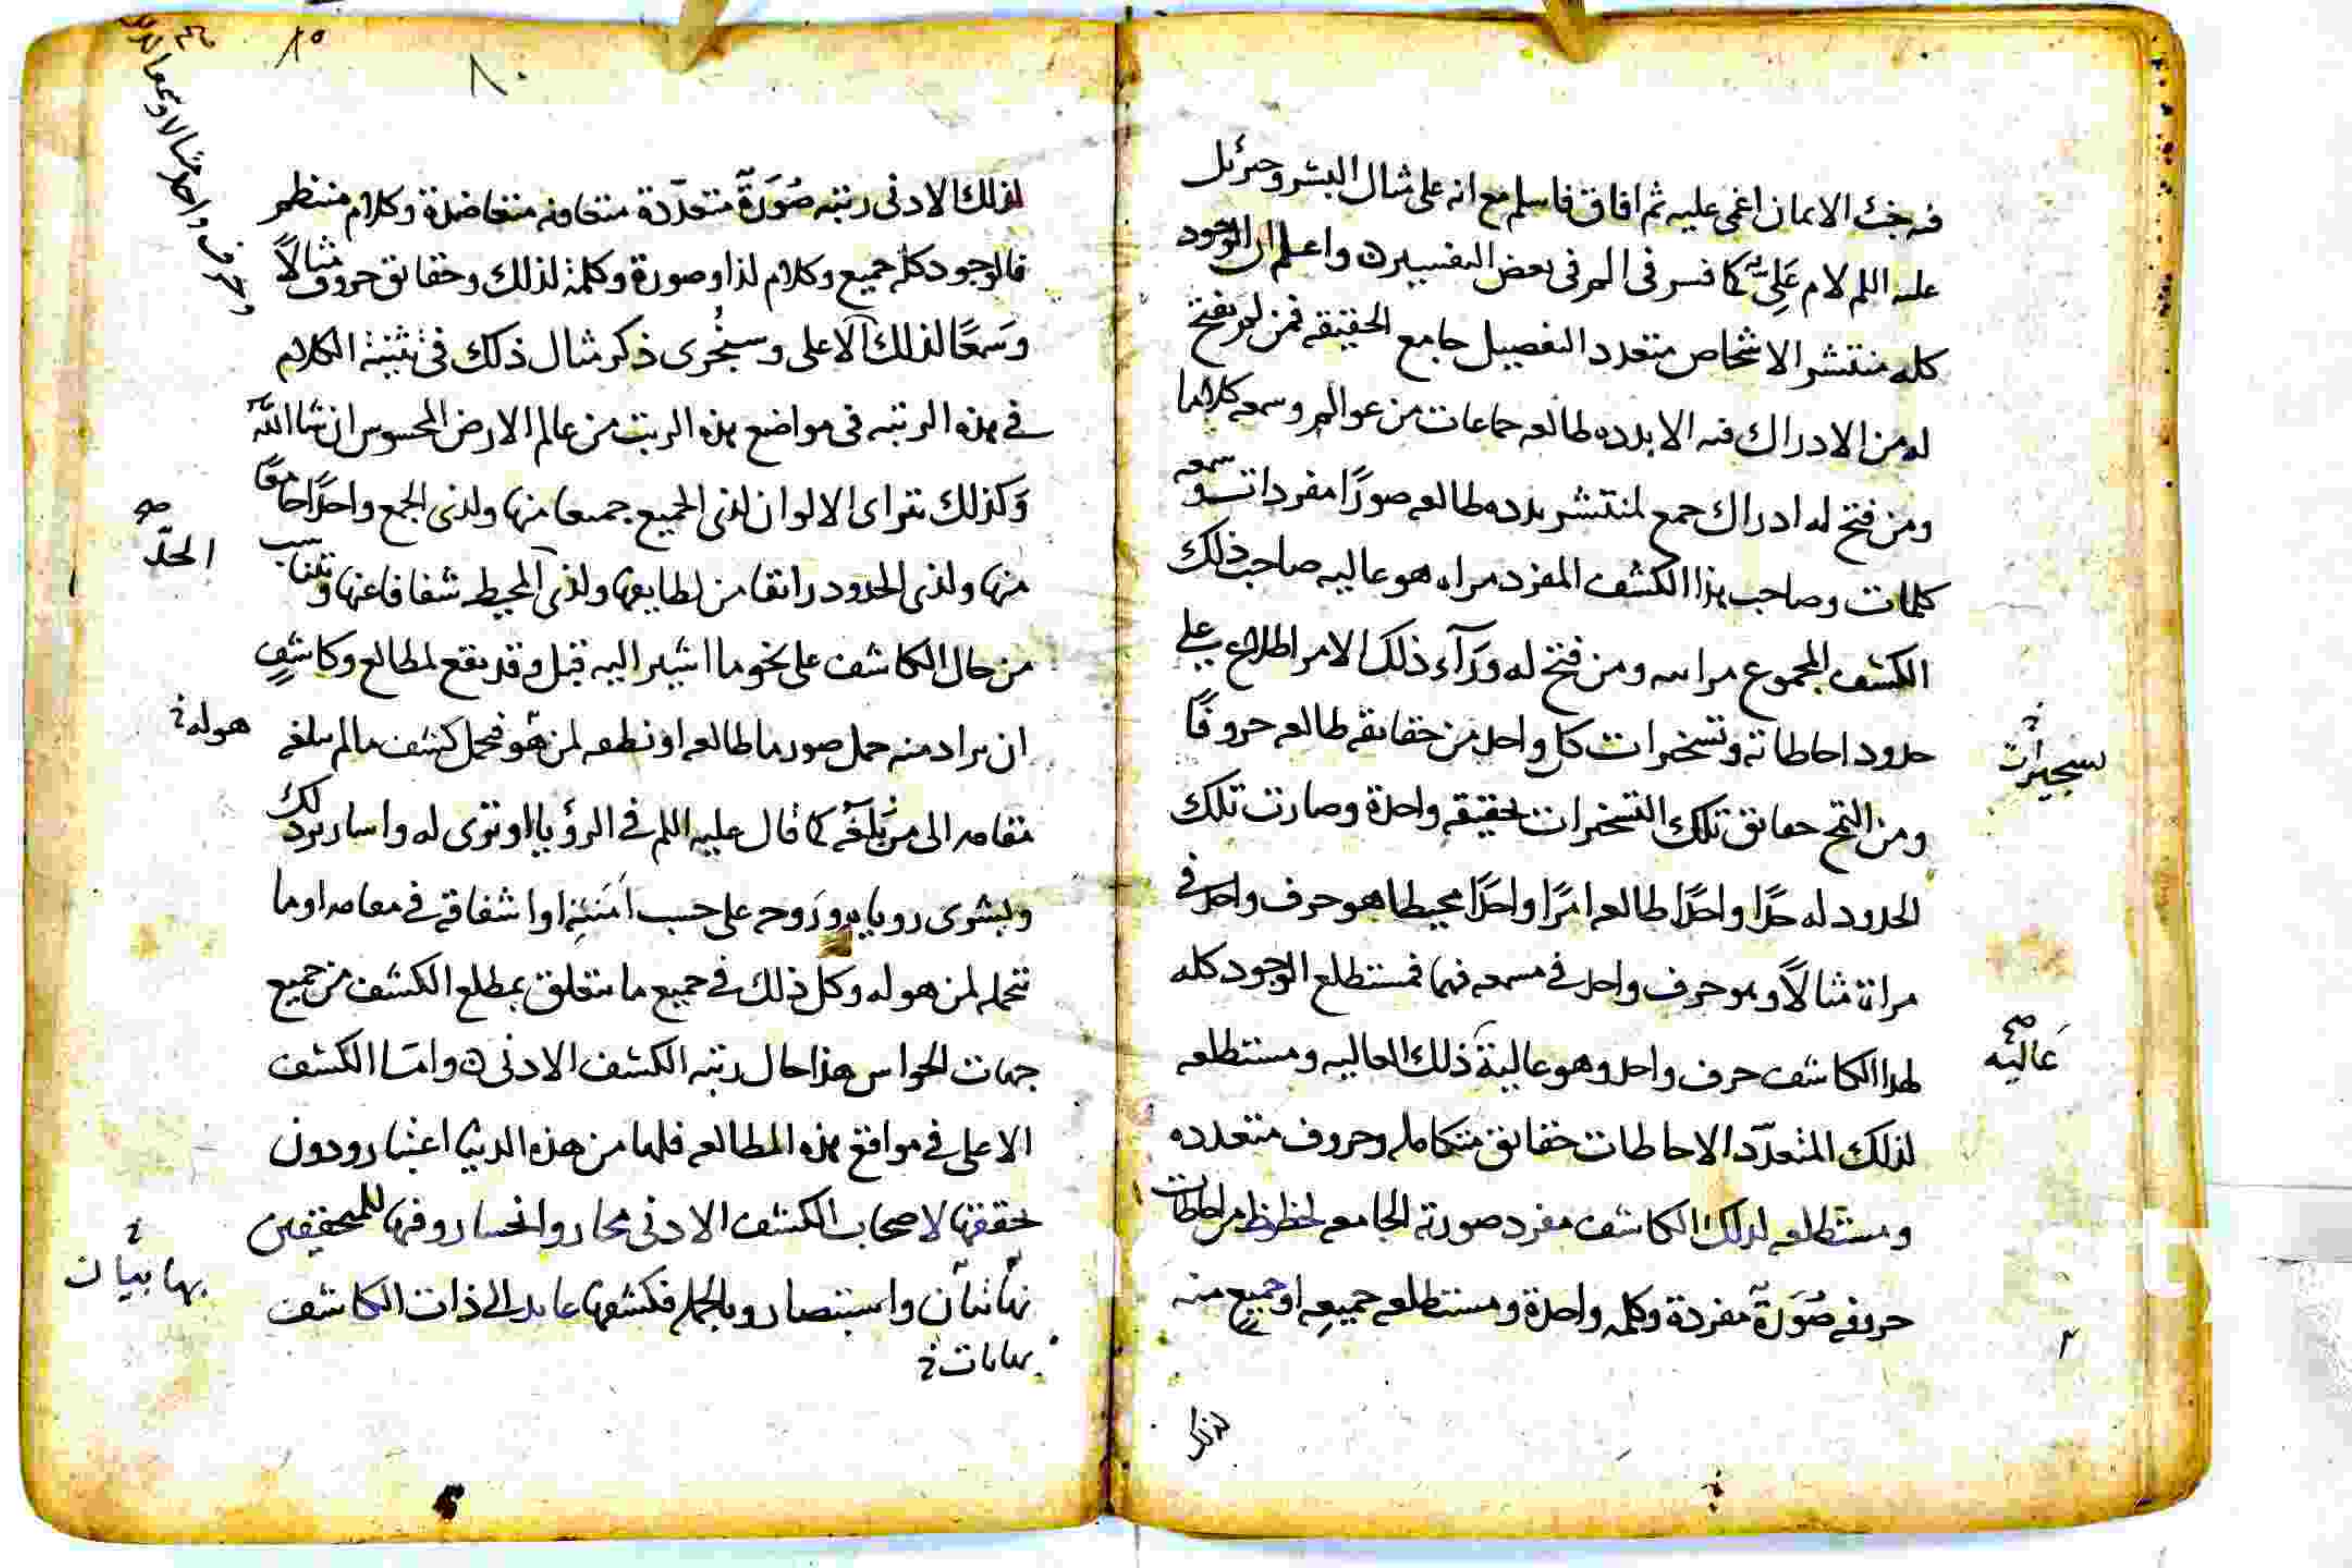 فيه خبث الايمان اغمى عليه ثم افاق فاسلم مع انه على مثال البشر وجبرئيل
عليه اللم لام عَلِىّ كما فسر فى الم فى بعض التفسير ن واعلم ان الوجود
كله منتشر الاشخاص متعدد التفصيل جامع الحقيقه فمن لم يفتح
له من الادراك فيه الا بدده طالعه جماعات من عوالم وسمعه كلاما
ومن فتح له ادراك جمع لمنتشر بدده طالعه صورًا مفردات وسمعه
كلمات وصاحب هذا الكشف المفرد مراه هو عاليه صاحب ذلك
الكشف المجموع مراىه ومن فتح له ورَآء ذلك الامر اطلاع على
حدود احاطاته وتسخيرات كل واحد من حقايقه طالعه حروفًا
ومن حقايق تلك التسخيرات بحقيقه واحدة وصارت تلك
الحدود له حدًّا واحدًا طالعه امرًا واحدًا محيطا هو حرف واحد فى
مراىه مثالاً وهو حرف واحد فى مسمعه فهما فمستطلع الوجود كله
لهذا الكاشف حرف واحد وهو عالية ذلك العاليه ومستطلعه
لذلك المتعدّد الاحاطات حقايق متكامله وحروف متعدده
ومستطلعه لذلك الكاشف مفرد صورته الجامعه من احاطات
حروفه صُوَرَةً مفردة وكلمه واحدة ومستطلعه جميعِه او جميعٍ منه
تسجيرات
عَاليه
لذلك
لذلك الادنى رتبه صُوَرَةً متعدّدة متعاونه متعاضدة وكلام منتظم
فالوجود كله جميع وكلام لذا وصورة وكلمة لذلك وحقايق حروف مثالاً
وسَمعًا لذلك الاعلى وسيجُرى ذكر مثال ذلك فى تثنية الكلام
فى هذه الرتبه فى مواضع هذه الرتب من عالم الارض المحسوس ان شا اللّه
وَكذلك تتراى الالوان لذى الجميع جميعا منها ولذى الجمع واحدًا جامعًا
منها ولذى الحدود رائقا من لطايفها ولذى المحيط شفافا عنها وتتناسب
من حال الكاشف على نحو ما اشير اليه قبل وقد يقع لمطالع وكاشفٍ
ان يراد منه حمل صور ما طالعه او نطقه لمن هُو فحمل كشف ما لم يبلغه
مقامه الى من بَلَغَه كما قال عليه اللم فى الرؤيا او تُرى له واسار بذلك
وبشرى رويا يرو رَوحه على حسب امَنَتِه او اشفاقه فى مقامه او ما
تتحمله لمن هو له وكل ذلك فى جميع ما يتعلق بمطلع الكشف من جميع
جهات الحواس هذا حال رتبه الكشف الادنى ن وامّا الكشف
الاعلى فى مواقع هذه المطالعه فلها من هذه الدنيا اعتبار ودون
تحققها لاصحاب الكشف الادنى محار وانحسار وفيها للمتحققين
نهاتبيان واستبصار وبالجمله فكشفها عايد الى ذات الكاشف
نهايات
الحدّ
هوله
بها بيان
٨٠